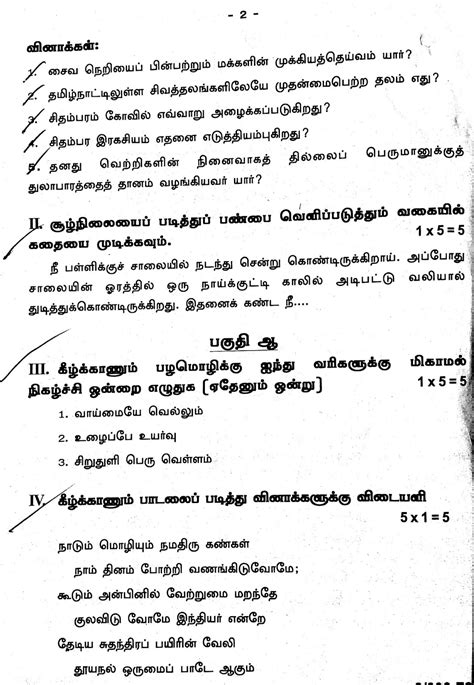 - 2 -
வினாக்கள்:
1. சைவ நெறியைப் பின்பற்றும் மக்களின் முக்கியத்தெய்வம் யார்?
2. தமிழ்நாட்டிலுள்ள சிவத்தலங்களிலேயே முதன்மைபெற்ற தலம் எது?
3. சிதம்பரம் கோவில் எவ்வாறு அழைக்கப்படுகிறது?
4. சிதம்பர இரகசியம் எதனை எடுத்தியம்புகிறது?
5. தனது வெற்றிகளின் நினைவாகத் தில்லைப் பெருமானுக்குத்
துலாபாரத்தைத் தானம் வழங்கியவர் யார்?
II. சூழ்நிலையைப் படித்துப் பண்பை வெளிப்படுத்தும் வகையில்
கதையை முடிக்கவும். 1 x 5 = 5
நீ பள்ளிக்குச் சாலையில் நடந்து சென்று கொண்டிருக்கிறாய். அப்போது
சாலையின் ஓரத்தில் ஒரு நாய்க்குட்டி காலில் அடிபட்டு வலியால்
துடித்துக்கொண்டிருக்கிறது. இதனைக் கண்ட நீ....
பகுதி ஆ
III. கீழ்க்காணும் பழமொழிக்கு ஐந்து வரிகளுக்கு மிகாமல்
நிகழ்ச்சி ஒன்றை எழுதுக (ஏதேனும் ஒன்று) 1 x 5 = 5
1. வாய்மையே வெல்லும்
2. உழைப்பே உயர்வு
3. சிறுதுளி பெரு வெள்ளம்
IV. கீழ்க்காணும் பாடலைப் படித்து வினாக்களுக்கு விடையளி
5 x 1 = 5
நாடும் மொழியும் நமதிரு கண்கள்
நாம் தினம் போற்றி வணங்கிடுவோமே;
கூடும் அன்பினில் வேற்றுமை மறந்தே
குலவிடு வோமே இந்தியர் என்றே
தேடிய சுதந்திரப் பயிரின் வேலி
தூயநல் ஒருமைப் பாடே ஆகும்